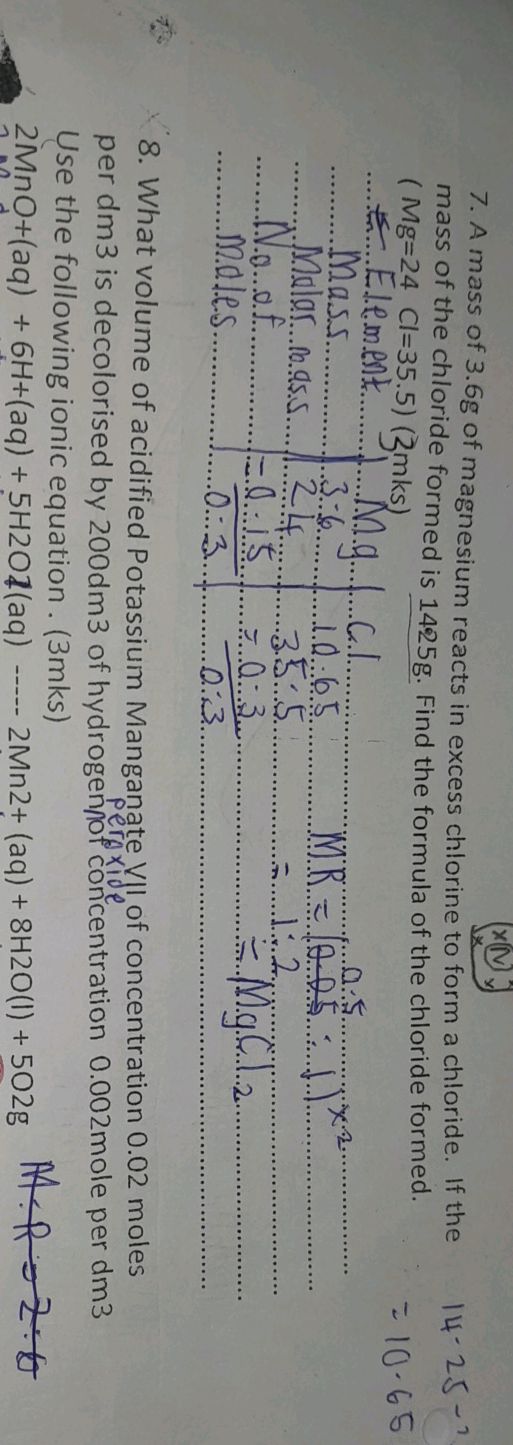 7. A mass of 3.6g of magnesium reacts in excess chlorine to form a chloride. If the
mass of the chloride formed is 1425g. Find the formula of the chloride formed.
( Mg=24 Cl=35.5) (3mks)
14.25 -
= 10.65
Element | Mg | Cl
Mass | 3.6 | 10.65
Molar mass | 24 | 35.5
No. of = 0.15 | = 0.3
Moles 0.3 | 0.3
MR = (0.5 : 1) x2
= 1:2
= MgCl2
8. What volume of acidified Potassium Manganate VII of concentration 0.02 moles
per dm3 is decolorised by 200dm3 of hydrogen peroxide of concentration 0.002mole per dm3
Use the following ionic equation . (3mks)
2MnO+(aq) + 6H+(aq) + 5H2O2(aq) ----- 2Mn2+ (aq) + 8H2O(l) + 5O2g